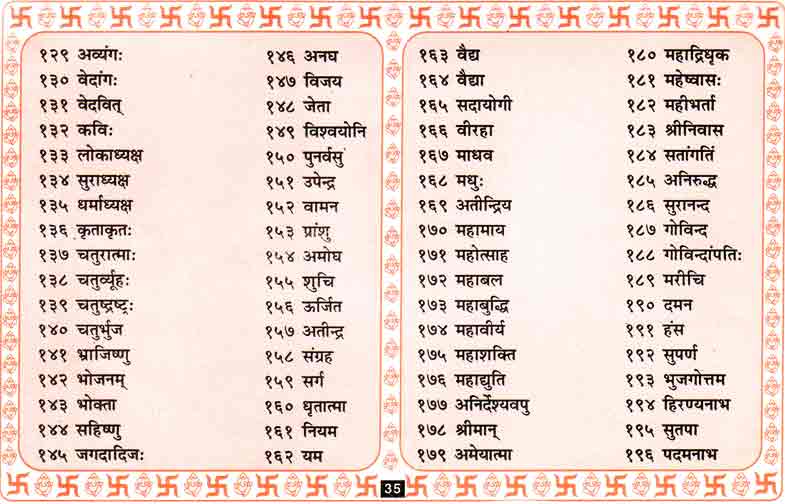 १२९ अव्यंगः
१३० वेदांगः
१३१ वेदवित्
१३२ कविः
१३३ लोकाध्यक्ष
१३४ सुराध्यक्ष
१३५ धर्माध्यक्ष
१३६ कृताकृतः
१३७ चतुरात्माः
१३८ चतुर्व्यूहः
१३९ चतुष्द्रष्ट्ः
१४० चतुर्भुज
१४१ भ्राजिष्णु
१४२ भोजनम्
१४३ भोक्ता
१४४ सहिष्णु
१४५ जगदादिजः
१४६ अनघ
१४७ विजय
१४८ जेता
१४९ विश्वयोनि
१५० पुनर्वसु
१५१ उपेन्द्र
१५२ वामन
१५३ प्रांशु
१५४ अमोघ
१५५ शुचि
१५६ ऊर्जित
१५७ अतीन्द्र
१५८ संग्रह
१५९ सर्ग
१६० धृतात्मा
१६१ नियम
१६२ यम
१६३ वैद्य
१६४ वैद्या
१६५ सदायोगी
१६६ वीरहा
१६७ माधव
१६८ मधुः
१६९ अतीन्द्रिय
१७० महामाय
१७१ महोत्साह
१७२ महाबल
१७३ महाबुद्धि
१७४ महावीर्य
१७५ महाशक्ति
१७६ महाद्युति
१७७ अनिर्देश्यवपु
१७८ श्रीमान्
१७९ अमेयात्मा
१८० महाद्रिधृक
१८१ महेष्वासः
१८२ महीभर्ता
१८३ श्रीनिवास
१८४ सतांगतिं
१८५ अनिरुद्ध
१८६ सुरानन्द
१८७ गोविन्द
१८८ गोविन्दांपतिः
१८९ मरीचि
१९० दमन
१९१ हंस
१९२ सुपर्ण
१९३ भुजगोत्तम
१९४ हिरण्यनाभ
१९५ सुतपा
१९६ पदमनाभ
35